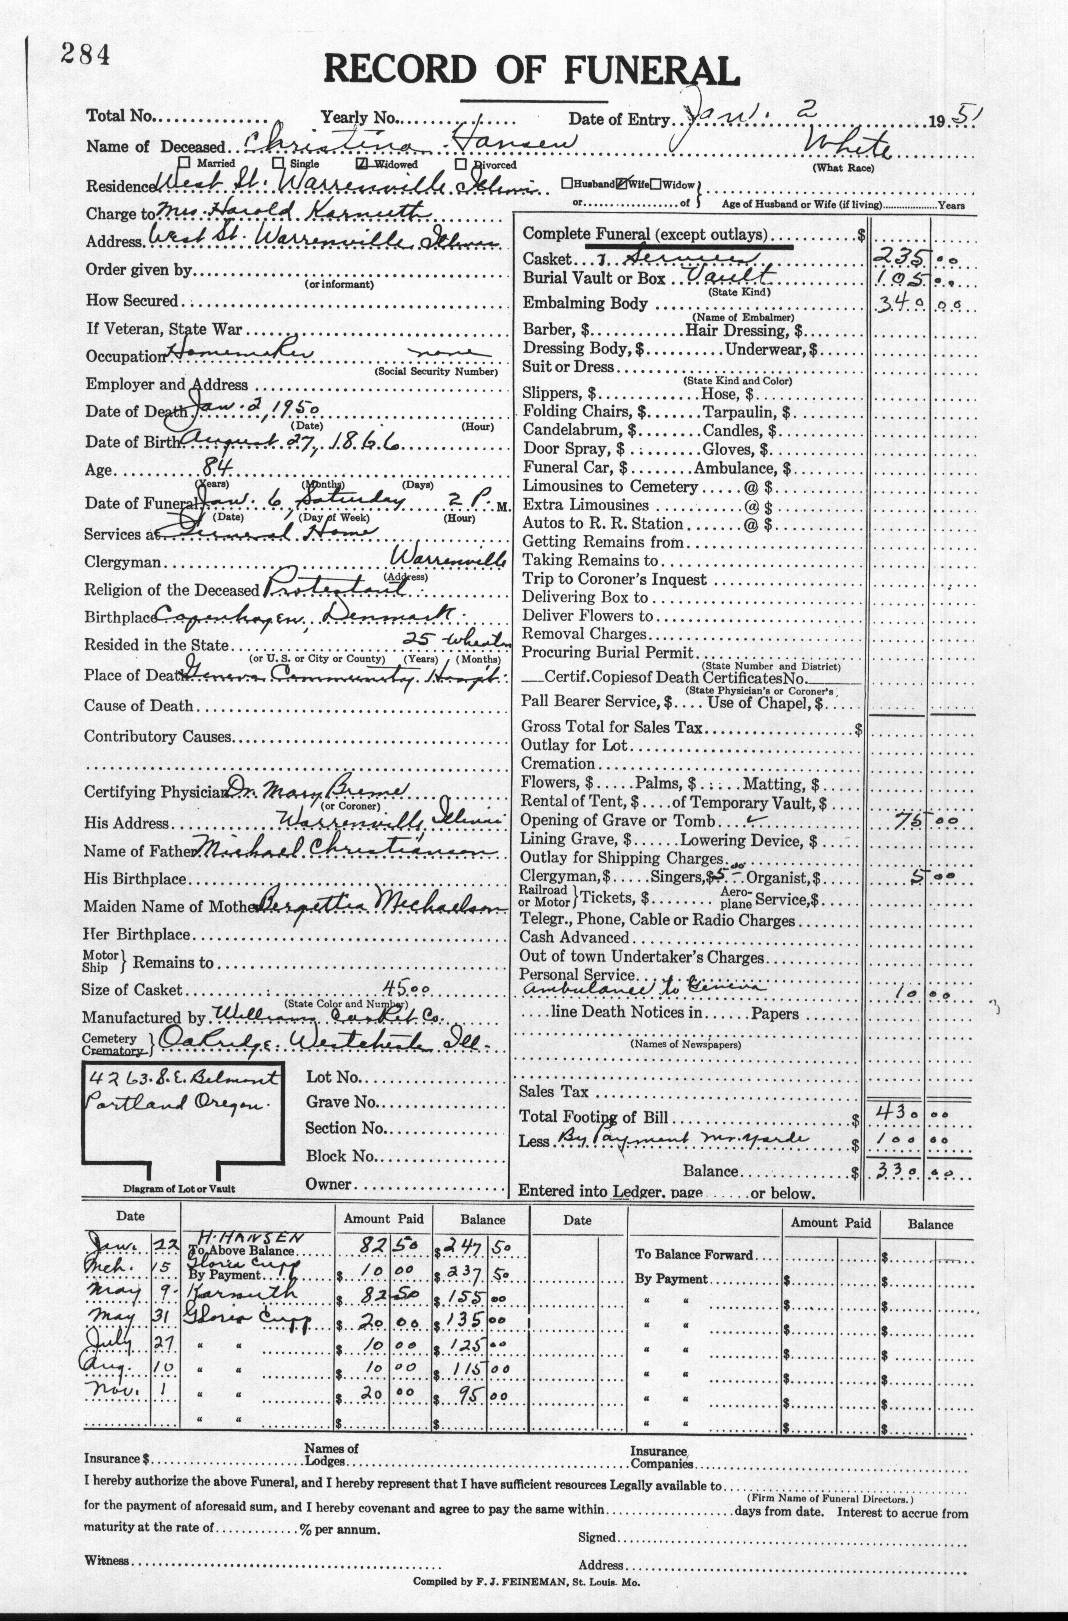 284
RECORD OF FUNERAL
Total No. Yearly No. Date of Entry Jan. 2 1951
Name of Deceased Christina Hansen White
☐ Married ☐ Single ☑ Widowed ☐ Divorced (What Race)
Residence West St. Warrenville Illinois ☐Husband ☑Wife ☐Widow
or of Age of Husband or Wife (if living) Years
Charge to Mrs. Harold Karnuth
Address West St. Warrenville, Illinois
Order given by
(or informant)
How Secured
If Veteran, State War
Occupation Homemaker none
(Social Security Number)
Employer and Address
Date of Death Jan. 2, 1950
(Date) (Hour)
Date of Birth August 27, 1866
Age 84
(Years) (Months) (Days)
Date of Funeral Jan. 6, Saturday 2 P. M.
(Date) (Day of Week) (Hour)
Services at Funeral Home
Clergyman Warrenville
(Address)
Religion of the Deceased Protestant
Birthplace Copenhagen, Denmark
Resided in the State 25 Wheaton
(or U. S. or City or County) (Years) (Months)
Place of Death Geneva Community Hospt.
Cause of Death
Contributory Causes
Certifying Physician Dr. Mary Breme
(or Coroner)
His Address Warrenville, Illinois
Name of Father Michael Christiansen
His Birthplace
Maiden Name of Mother Bergettia Mechaelson
Her Birthplace
Motor Ship } Remains to
Size of Casket 4500
(State Color and Number)
Manufactured by Williams Casket Co.
Cemetery Crematory } Oakridge Westchester Ill.
4263 S.E. Belmont
Portland Oregon.
Diagram of Lot or Vault
Lot No.
Grave No.
Section No.
Block No.
Owner
Complete Funeral (except outlays) $
Casket & Services 235 00
Burial Vault or Box Vault 105 00
(State Kind)
Embalming Body 340 00
(Name of Embalmer)
Barber, $ Hair Dressing, $
Dressing Body, $ Underwear, $
Suit or Dress
(State Kind and Color)
Slippers, $ Hose, $
Folding Chairs, $ Tarpaulin, $
Candelabrum, $ Candles, $
Door Spray, $ Gloves, $
Funeral Car, $ Ambulance, $
Limousines to Cemetery @ $
Extra Limousines @ $
Autos to R. R. Station @ $
Getting Remains from
Taking Remains to
Trip to Coroner's Inquest
Delivering Box to
Deliver Flowers to
Removal Charges
Procuring Burial Permit
(State Number and District)
Certif. Copies of Death Certificates No.
(State Physician's or Coroner's
Pall Bearer Service, $ Use of Chapel, $
Gross Total for Sales Tax $
Outlay for Lot
Cremation
Flowers, $ Palms, $ Matting, $
Rental of Tent, $ of Temporary Vault, $
Opening of Grave or Tomb ✓ 75 00
Lining Grave, $ Lowering Device, $
Outlay for Shipping Charges
Clergyman, $ Singers, $5 00 Organist, $ 5 00
Railroad or Motor } Tickets, $ Aeroplane Service, $
Telegr., Phone, Cable or Radio Charges
Cash Advanced
Out of town Undertaker's Charges
Personal Service
Ambulance to Geneva 10 00
line Death Notices in Papers
(Names of Newspapers)
Sales Tax
Total Footing of Bill $ 430 00
Less By Payment Mr. Yarde $ 100 00
Balance $ 330 00
Entered into Ledger, page or below.
Date Amount Paid Balance Date Amount Paid Balance
Jan. 22 H. HANSEN To Above Balance 82 50 $247 50 To Balance Forward $
Mch. 15 Gloria Cupp By Payment $ 10 00 $237 50 By Payment $ $
May 9 Karnuth $ 82 50 $155 00 " " $ $
May 31 Gloria Cupp $ 20 00 $135 00 " " $ $
July 27 " " $ 10 00 $125 00 " " $ $
Aug. 10 " " $ 10 00 $115 00 " " $ $
Nov. 1 " " $ 20 00 $95 00 " " $ $
" " $ $ " " $ $
Insurance $ Names of Lodges Insurance Companies
I hereby authorize the above Funeral, and I hereby represent that I have sufficient resources Legally available to
(Firm Name of Funeral Directors.)
for the payment of aforesaid sum, and I hereby covenant and agree to pay the same within days from date. Interest to accrue from
maturity at the rate of % per annum.
Signed
Witness Address
Compiled by F. J. FEINEMAN, St. Louis. Mo.